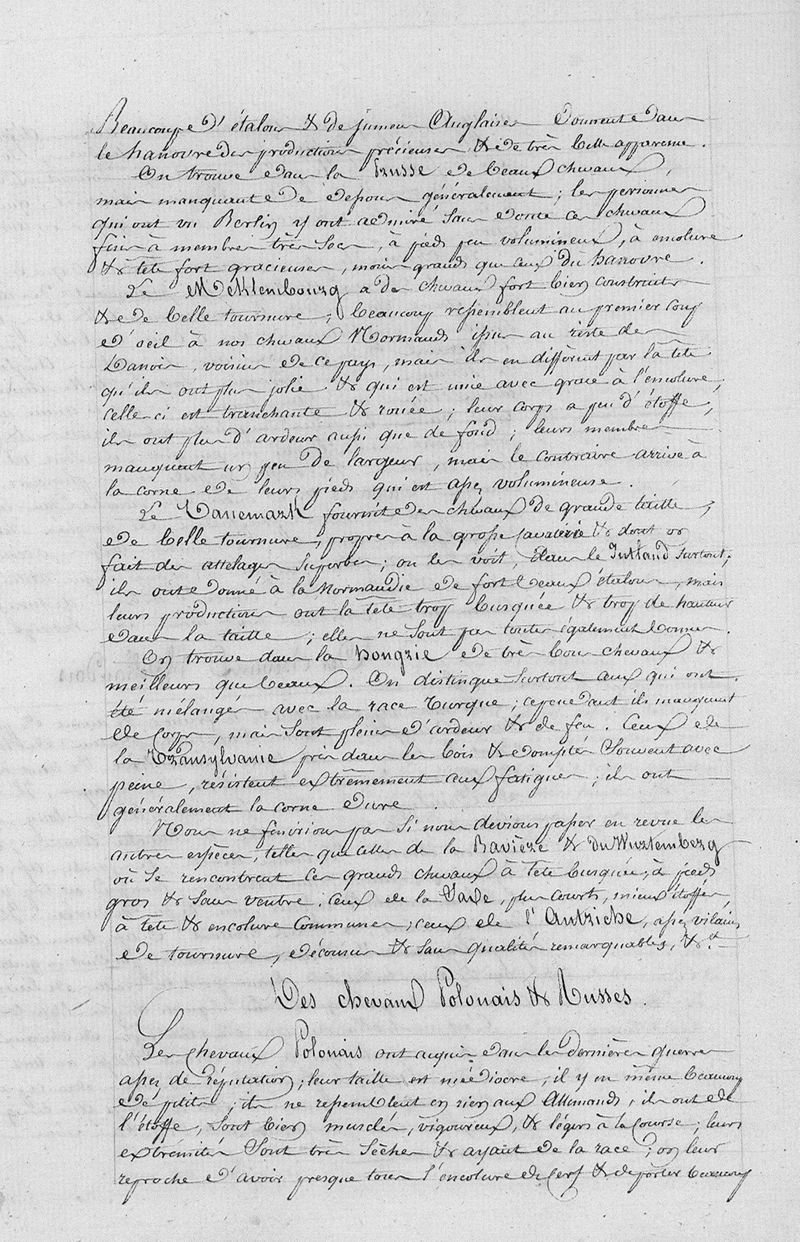 Beaucoup d'étalons & de jumens Anglaises donnent dans
le hanovre des productions précieuses & de très belle apparence.
On trouve dans la Prusse de beaux chevaux,
mais manquant de dessous généralement ; les personnes
qui ont vu Berlin y ont admiré sans doute ces chevaux
fins à membres très secs, à pieds peu volumineux, à encolure
& tête fort gracieuses, moins grands que ceux du hanovre.
Le Meklembourg a des chevaux fort bien construits
& de belle tournure ; beaucoup ressemblent au premier coup
d'oeil à nos chevaux Normands issus au reste des
Danois, voisins de ce pays, mais ils en diffèrent par la tête
qu'ils ont plus jolie & qui est unie avec grace à l'encolure,
celle ci est tranchante & rouée ; leur corps a peu d'étoffe,
ils ont plus d'ardeur aussi que de fond ; leurs membres
manquent un peu de largeur, mais le contraire arrive à
la corne de leurs pieds qui est assez volumineuse.
Le Danemark fournit des chevaux de grande taille,
de belle tournure, propres à la grosse cavalerie & dont on
fait des attelages superbes ; on les voit, dans le Jutland surtout ;
ils ont donné à la Normandie de fort beaux étalons, mais
leurs productions ont la tête trop busquée & trop de hauteur
dans la taille ; elles ne sont pas toutes également bonnes.
On trouve dans la hongrie de très bons chevaux &
meilleurs que beaux. On distingue surtout ceux qui ont
été mélangés avec la race Turque ; cependant ils manquent
de corps, mais sont pleins d'ardeur & de feu. Ceux de
la Transylvanie pris dans les bois & domptés souvent avec
peine, résistent extrêmement aux fatigues ; ils ont
généralement la corne dure.
Nous ne finirions pas si nous devions passer en revue les
autres espèces, telles que celles de la Bavière & du Wurtemberg
où se rencontrent ces grands chevaux à tête busquée, à pieds
gros & sans ventre ; ceux de la Saxe, plus courts, mieux étoffés,
à tête & encolure communes ; ceux de l'Autriche, assez vilains
de tournure, décousus & sans qualités remarquables, &.
Des chevaux Polonais & Russes.
Les chevaux Polonais ont acquis dans les dernières guerres
assez de réputation ; leur taille est médiocre ; il y en même beaucoup
de petits ; ils ne ressemblent en rien aux Allemands, ils ont de
l'étoffe, sont bien musclés, vigoureux, & légers à la course ; leurs
extrémités sont très sèches & ayant de la race ; on leur
reproche d'avoir presque tous l'encolure de Cerf & de porter beaucoup